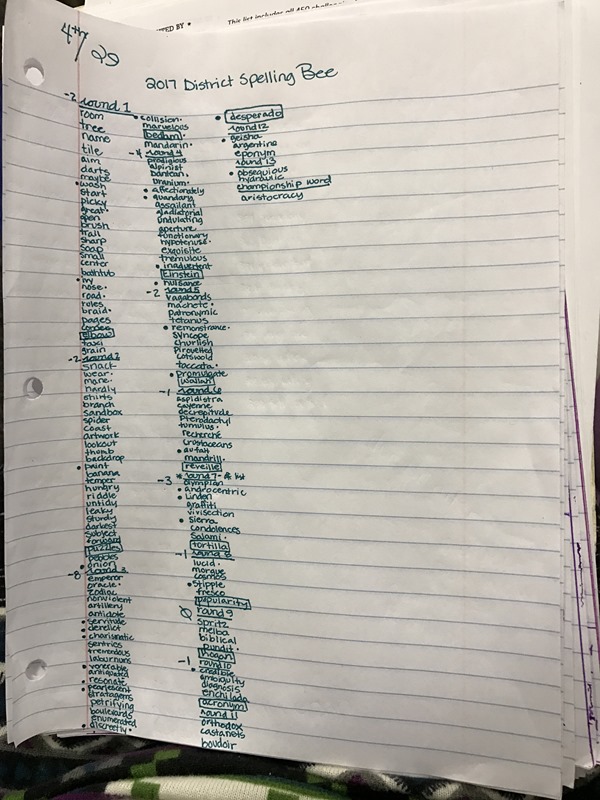 TED BY •
This list includes all 450 challen
4th/29
2017 District Spelling Bee
-2 round 1
room
tree
name
tile
aim
darts
maybe
• wash
start
picky
great
open
brush
trail
sharp
soap
small
center
bathtub
• ivy
nose •
road •
rules
braid •
pages
elbow
taxi
grain
-2 round 2
snack
wear •
mane •
hardly
shirts
branch
sandbox
spider
coast
artwork
lookout
thumb
backdrop
• paint
banana
temper
hungry
riddle
untidy
leaky
sturdy
darkest
subject
puzzles
• onion
-8 round 3
emperor
oracle •
zodiac
nonviolent
artillery
antidote
• servitude
• derelict
• charismatic
sentries
tremendous
laburnums
• venerable
antiquated
resonate
• pearlescent
stratagems
petrifying
boulevards
enumerated
• discreetly •
• collision •
marvelous
bedlam •
mandarin •
-4 round 4
prodigious
alpinist
bantean •
uranium •
• affectionately
• quandary
assailant
gladiatorial
undulating
aperture
functionary
hypotenuse •
exquisite
tremulous
• inadvertent
Einstein
• nuisance
-2 round 5
vagabonds
machete •
patronymic
tetanus
• remonstrance •
syncope
churlish
pirouetted
cotswold
toccata •
• promulgate
wallah
-1 round 6
aspidistra
cayenne
decrepitude
pterodactyl
tumulus •
recherché
crustaceans
• au fait
mandrill •
reveille
-3 * round 7 - * list
olympian
• androcentric
• Linden
graffiti
vivisection
• sienna
condolences
salami •
tortilla
-1 round 8
lucid •
morgue
cosmos
• stipple
fresco
popularity
Ø round 9
spritz
melba
biblical
pundit •
hogan
-1 round 10
• credible
ambiguity
diagnosis
enchilada
acronym
round 11
orthodox
castanets
boudoir
• desperado
round 12
• geisha
argentine
eponym
round 13
• obsequious
hydraulic
championship word
aristocracy